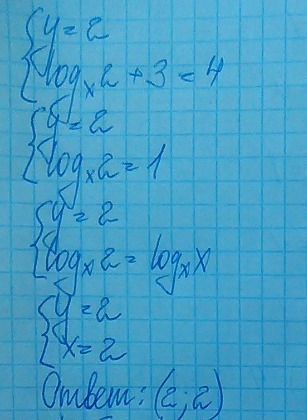 y = 2
logₓ2 + 3 = 4
y = 2
logₓ2 = 1
y = 2
logₓ2 = logₓx
y = 2
x = 2
Ответ: (2; 2)